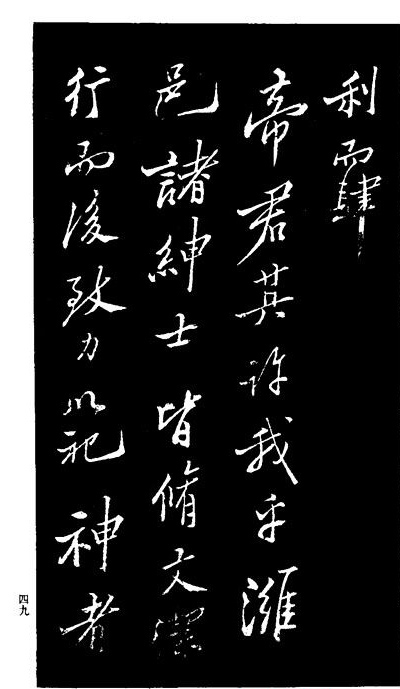 利而肆
帝君其許我乎濰
邑諸紳士皆脩文潔
行而後致力以祀神者
四九